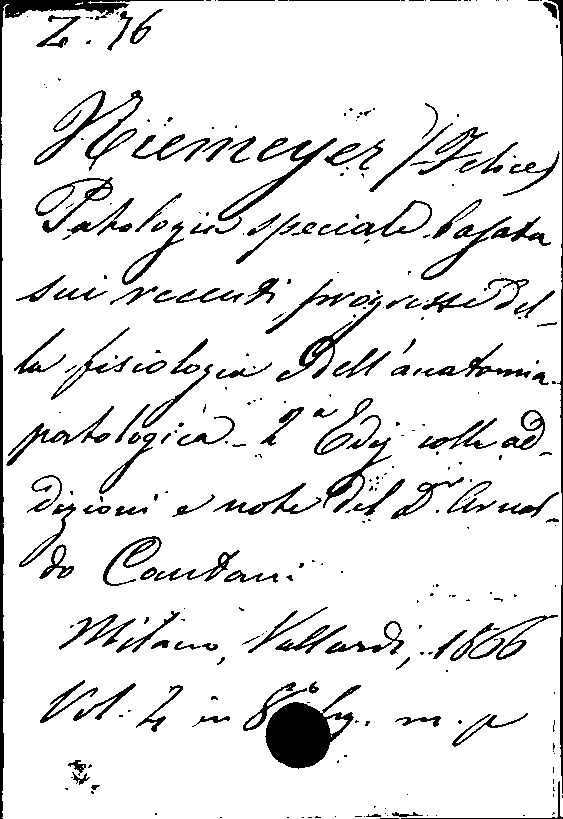 Z. 76
Niemeyer (Felice)
Patologia speciale basata
sui recenti progressi del-
la fisiologia e dell'anatomia
patologica - 2ª Ediz colle ad-
dizioni e note del Dr. Arnal-
do Cantani
Milano, Vallardi, 1866
Vol. 4 in 8° fig. m. p